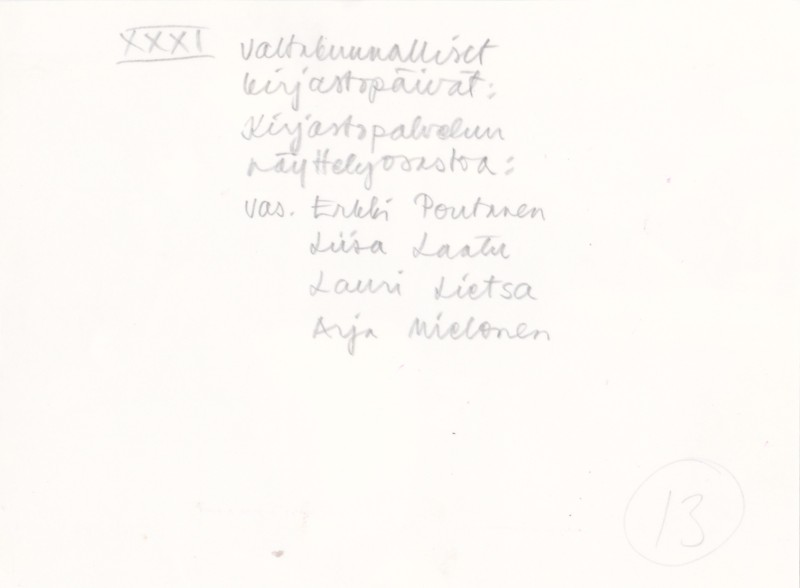 XXXI valtakunnalliset
kirjastopäivät:
Kirjastopalvelun
näyttelyosastoa:
vas. Erkki Poutanen
Liisa Laatu
Lauri Lietsa
Arja Mielonen
13